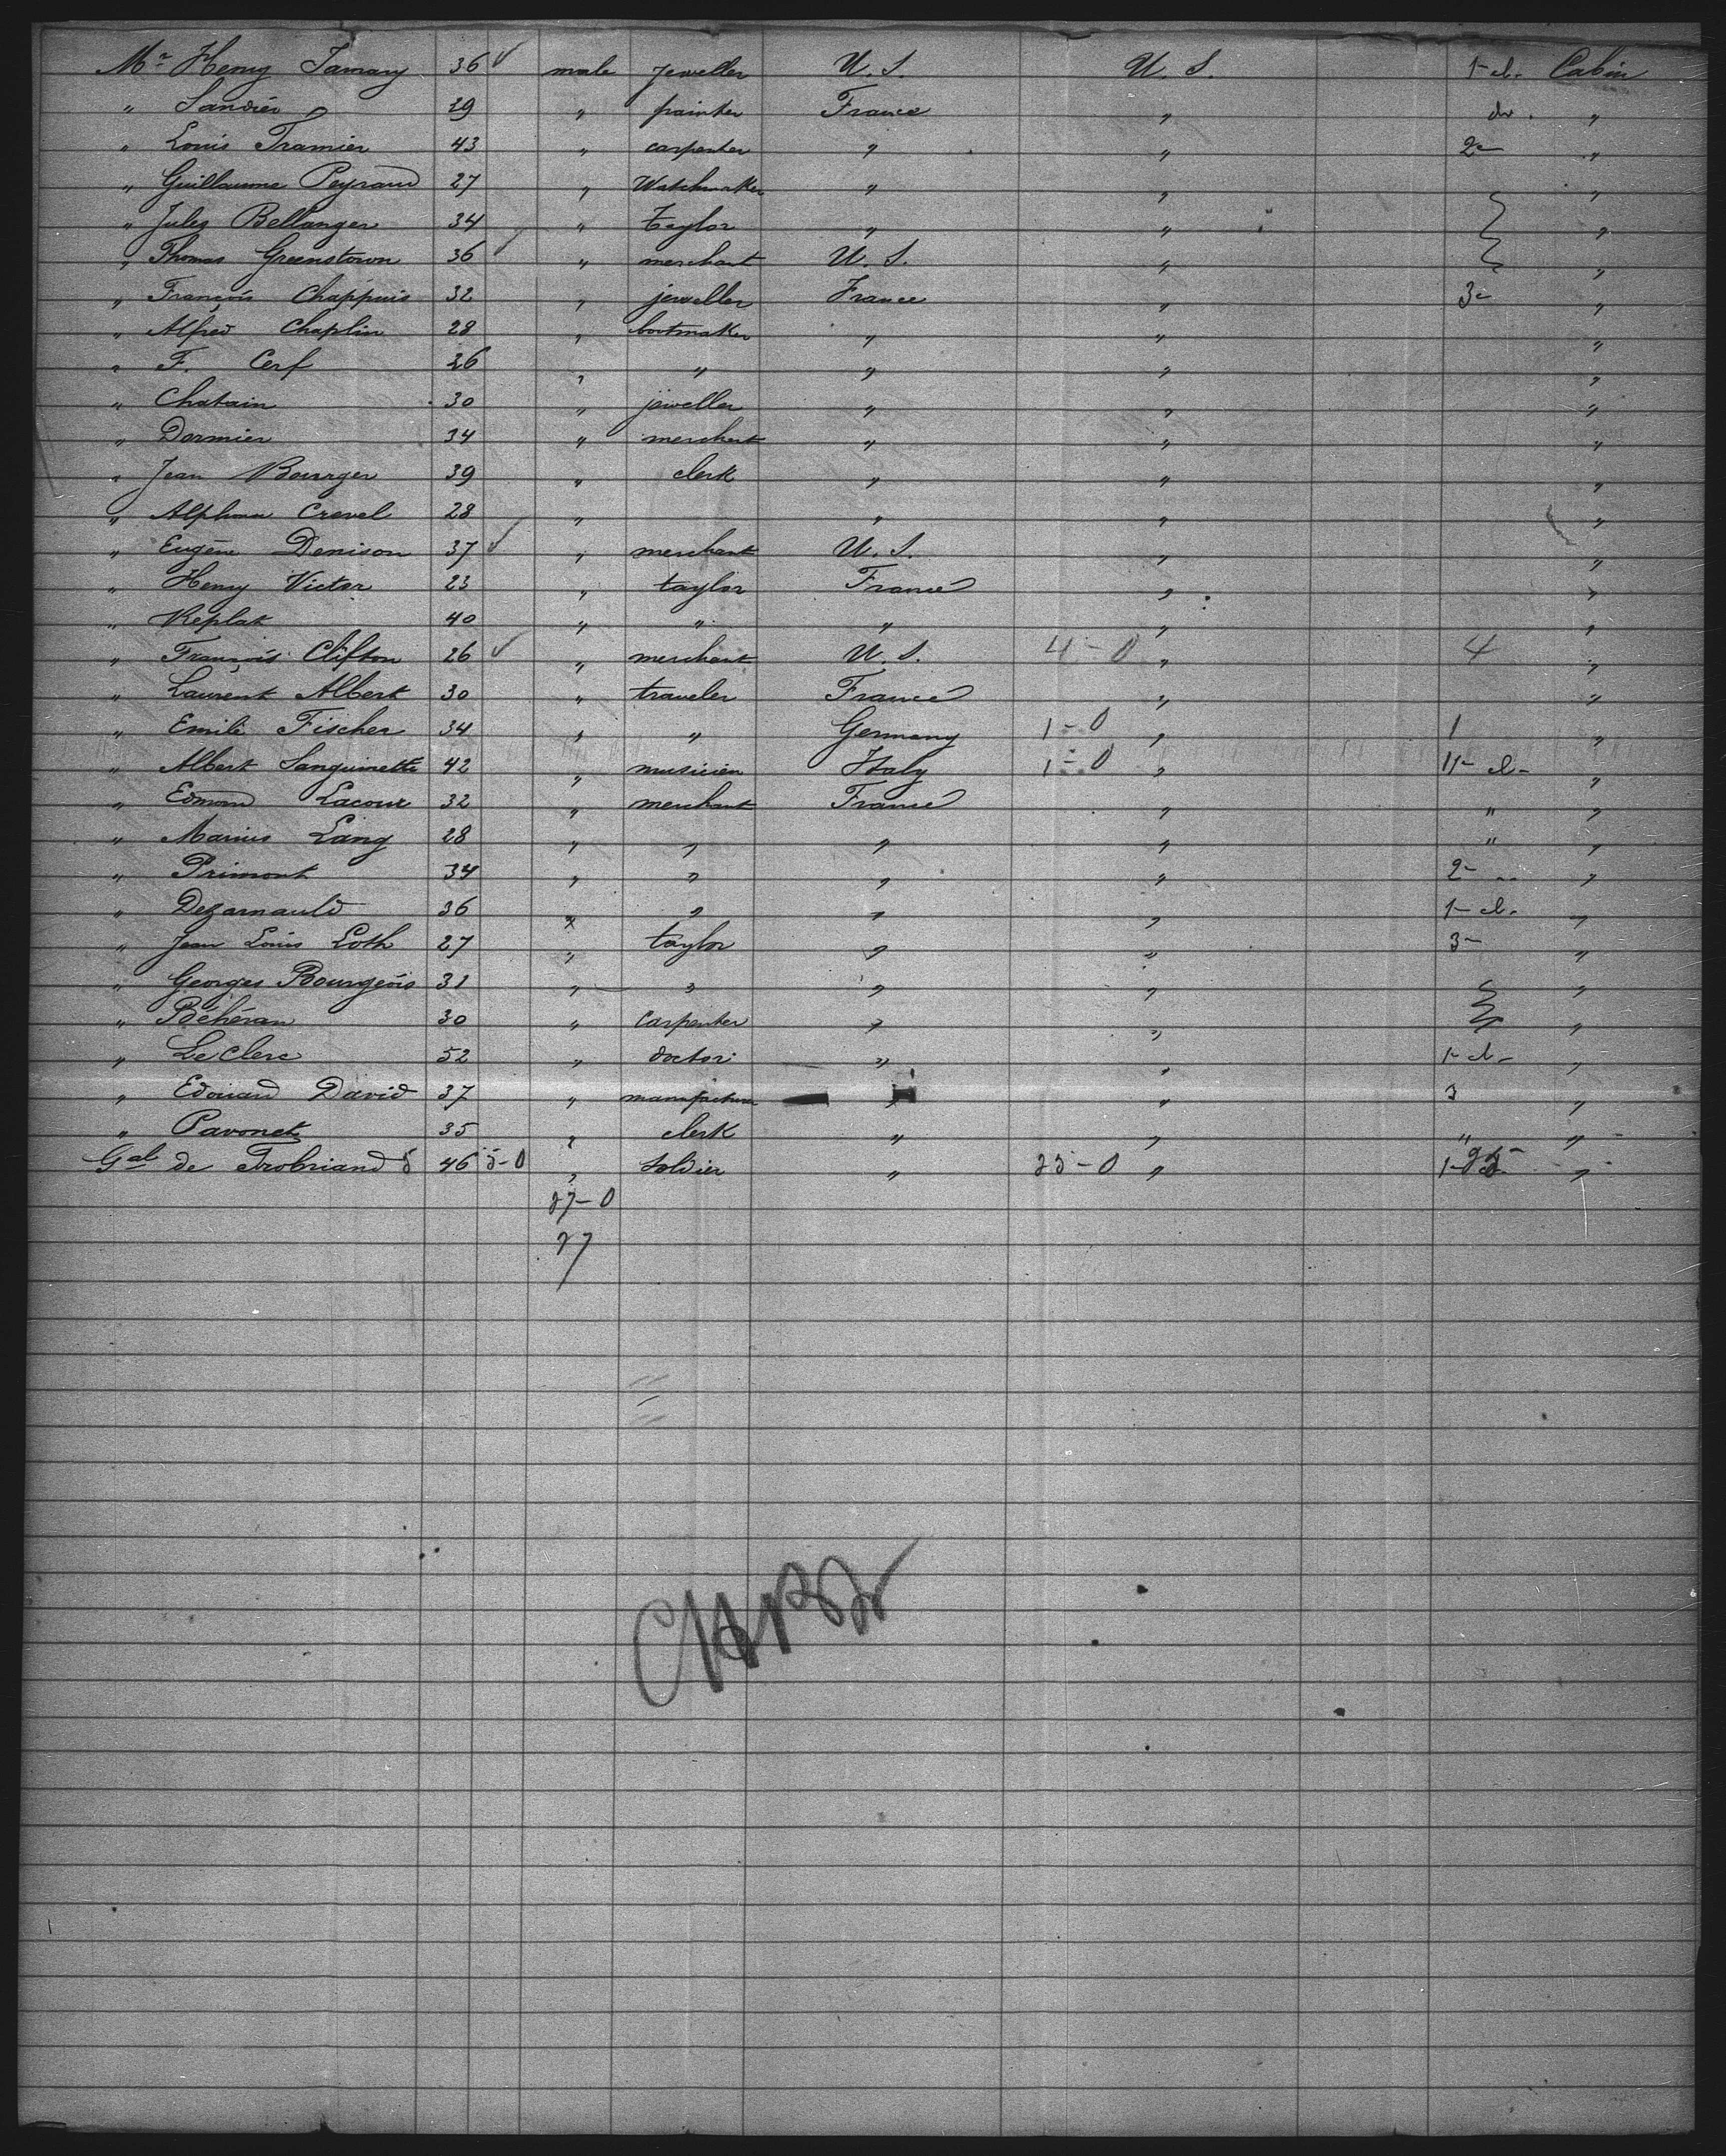 Mr Henry Tamary 36 male Jeweller U. S. U. S. 1- cl. Cabin
" Sandier 29 " painter France " do. "
" Louis Tramier 43 " carpenter " " 2- "
" Guillaume Peyraud 27 " Watchmaker " " "
" Jules Bellanger 34 " taylor " " "
" Thomas Greenstown 36 " merchant U. S. " "
" François Chappuis 32 " jeweller France " 3- "
" Alfred Chaplin 28 " bootmaker " " "
" F. Cerf 26 " " " " "
" Chatain 30 " jeweller " " "
" Dormier 34 " merchant " " "
" Jean Bourger 39 " clerk " " "
" Alphonse Crevel 28 " " " "
" Eugène Denison 37 " merchant U. S. " "
" Henry Victor 23 " taylor France " "
" Replat 40 " " " " "
" François Clifton 26 " merchant U. S. 4-0 " 4 "
" Laurent Albert 30 " traveler France " "
" Emile Fischer 34 " " Germany 1-0 " 1 "
" Albert Sanguinette 42 " musicien Italy 1-0 " 1- cl- "
" Edmond Lacour 32 " merchant France " " "
" Marius Lang 28 " " " " " "
" Primont 34 " " " " 2- "
" Dezarnauld 36 " " " " 1- cl. "
" Jean Louis Loth 27 " taylor " " 3- "
" Georges Bourgeois 31 " " " " "
" Béhéran 30 " carpenter " " "
" Le Clerc 52 " doctor " " 1- cl- "
" Edouard David 37 " manufacturer " " 3 "
" Pavonet 35 " clerk " " " "
Gal de Trobriand 5 46 5-0 " Soldier " 23-0 " 1- "
27-0
27